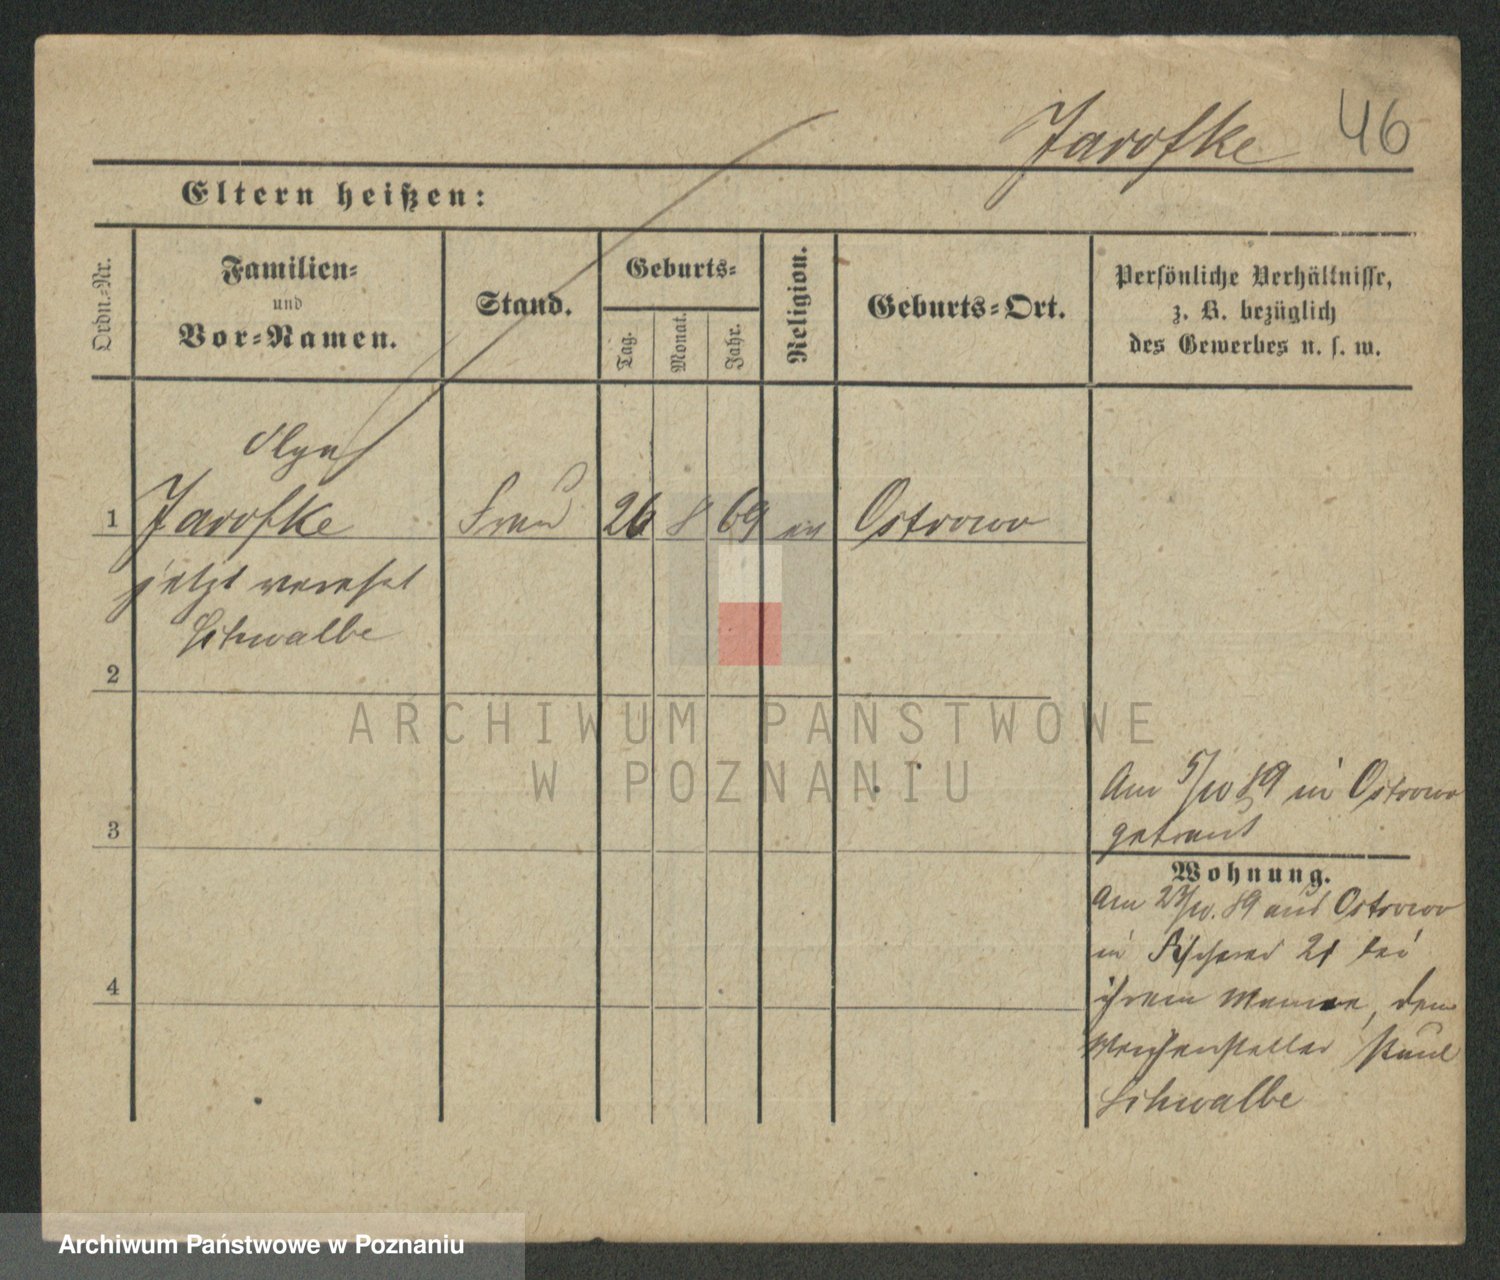 Jaroſke 46
Eltern heißen:
Ordn.-Nr.
Familien-
und
Vor-Namen.
Stand.
Geburts-
Tag.
Monat.
Jahr.
Religion.
Geburts-Ort.
Persönliche Verhältnisse,
z. B. bezüglich
des Gewerbes u. s. w.
Olga
1 Jaroſke Frau 26 8 69 ev Ostrowo
jetzt verehel
Schwalbe
2
3
4
Am 5/10 89 in Ostrowo
getraut
Wohnung.
Am /10. 89 aus Ostrowo
in Fischerei 21 bei
ihrem Manne, dem
Weichensteller Paul
Schwalbe
ARCHIWUM PAŃSTWOWE
W POZNANIU
Archiwum Państwowe w Poznaniu